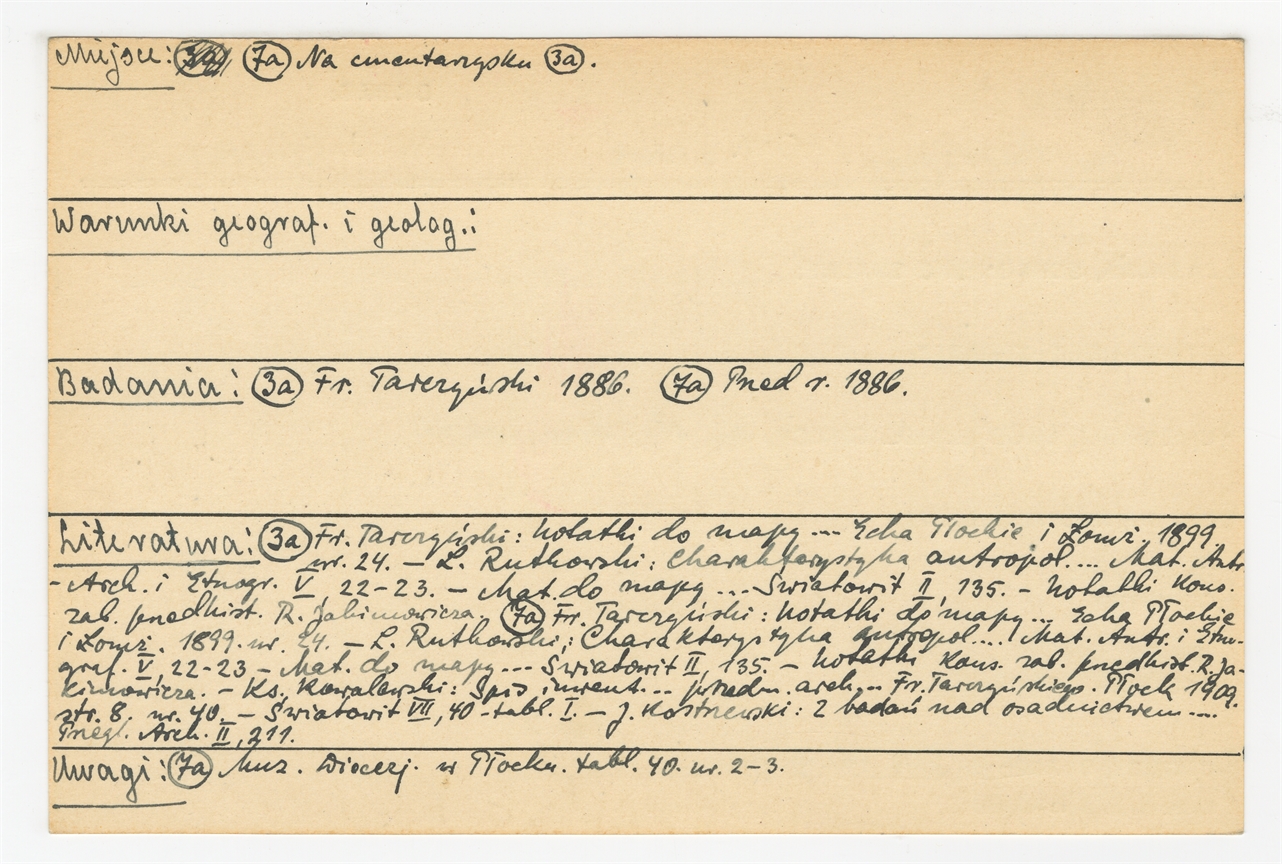 Miejsce: (7a) Na cmentarzysku (3a).
Warunki geograf. i geolog.:
Badania: (3a) Fr. Tarczyński 1886. (7a) Przed r. 1886.
Literatura: (3a) Fr. Tarczyński: Notatki do mapy --- Echa Płockie i Łomż. 1899.
nr. 24. – L. Rutkowski: Charakterystyka antropol.... Mat. Antr.
- Arch. i Etnogr. V, 22-23. – Mat. do mapy ... Swiatowit II, 135. – Notatki Kons.
zab. przedhist. R. Jakimowicza. (7a) Fr. Tarczyński: Notatki do mapy... Echa Płockie
i Łomż. 1899. nr. 24. – L. Rutkowski: Charakterystyka antropol.... Mat. Antr. i Etno-
graf. V, 22-23 – Mat. do mapy --- Swiatowit II, 135. – Notatki Kons. zab. przedhist. R. Ja-
kimowicza. – Ks. Kowalewski: Spis inwent... przedm. arch... Fr. Tarczyńskiego. Płock 1909.
str. 8, nr. 40. – Swiatowit VII, 40 - tabl. I. – J. Kostrzewski: Z badań nad osadnictwem ....
Przegl. Arch. II, 211.
Uwagi: (7a) Muz. Diecezj. w Płocku. tabl. 40. nr. 2-3.